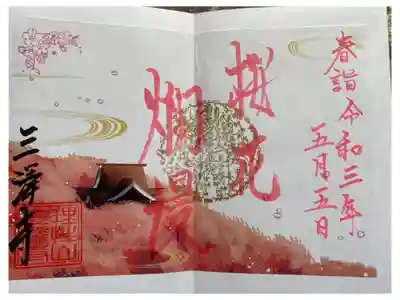 春詣令和三年
五月五日
桜花
爛漫
三澤寺